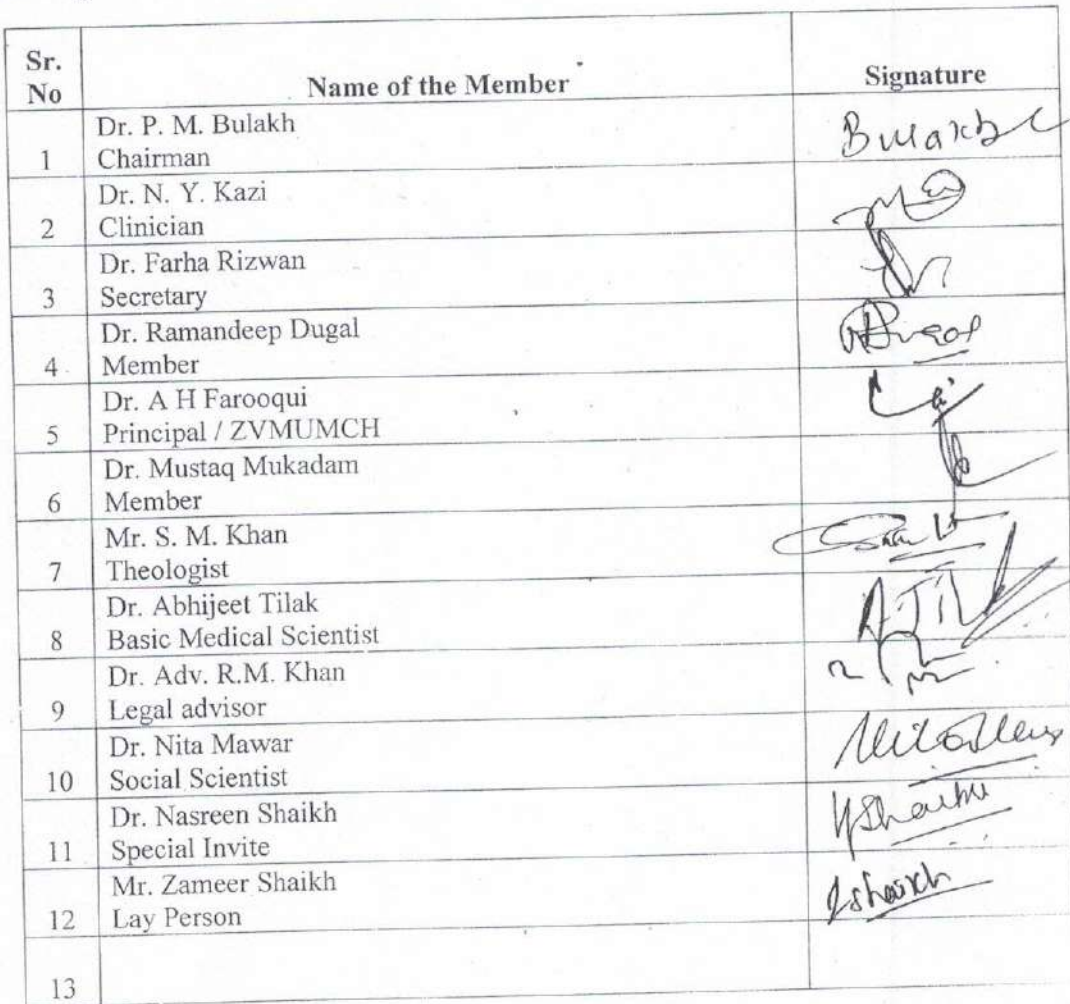 Sr.
No
Name of the Member
Signature
Dr. P. M. Bulakh
1 Chairman
Bulakh
Dr. N. Y. Kazi
2 Clinician
Dr. Farha Rizwan
3 Secretary
Dr. Ramandeep Dugal
4 Member
Dr. A H Farooqui
5 Principal / ZVMUMCH
Dr. Mustaq Mukadam
6 Member
Mr. S. M. Khan
7 Theologist
Dr. Abhijeet Tilak
8 Basic Medical Scientist
Dr. Adv. R.M. Khan
9 Legal advisor
Dr. Nita Mawar
10 Social Scientist
Dr. Nasreen Shaikh
11 Special Invite
Mr. Zameer Shaikh
12 Lay Person
13